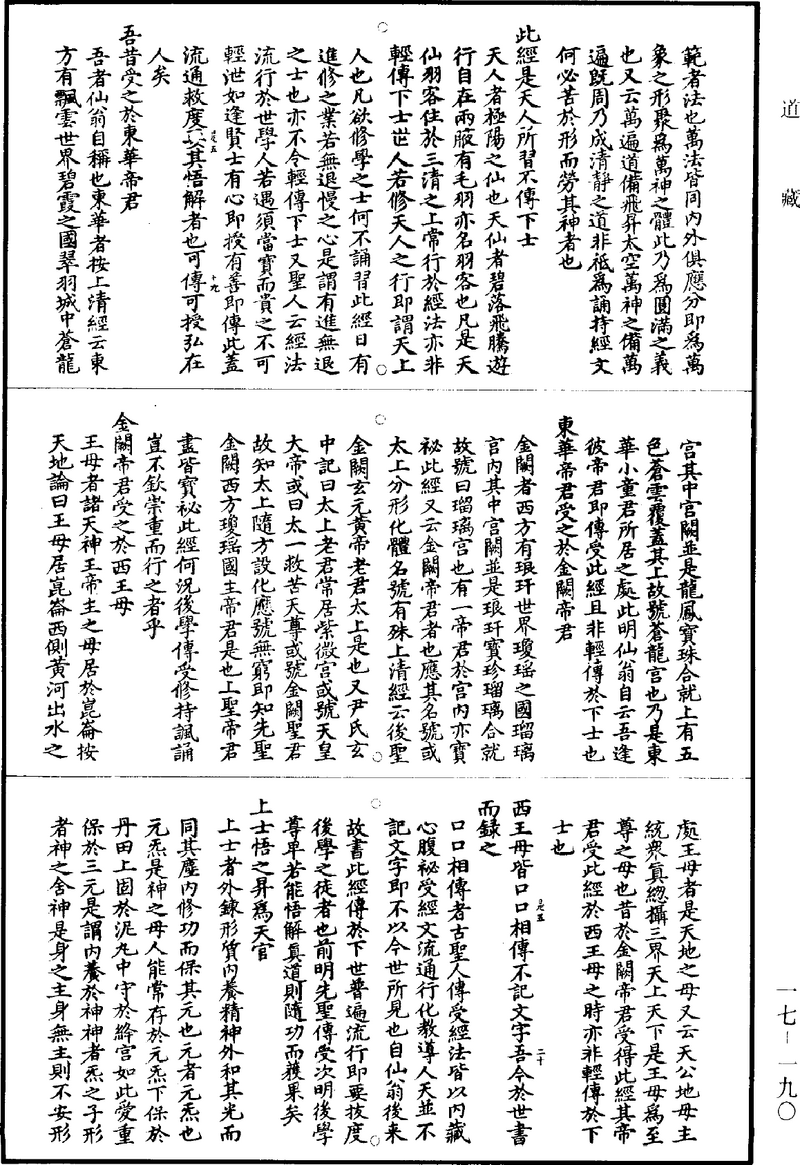 道藏
範者法也萬法皆同內外俱應分即爲萬
象之形聚爲萬神之體此乃爲圓滿之義
也又云萬遍道備飛昇太空萬神之備萬
遍旣周乃成清靜之道非祗爲誦持經文
何必苦於形而勞其神者也
此經是天人所習不傳下士
天人者極陽之仙也天仙者碧落飛騰遊
行自在兩腋有毛羽亦名羽客也凡是天
仙羽客住於三清之上常行於經法亦非
輕傳下士世人若修天人之行即謂天上
人也凡欲修學之士何不誦習此經日有
進修之業若無退慢之心是謂有進無退
之士也亦不令輕傳下士又聖人云經法
流行於世學人若遇須當寶而貴之不可
輕泄如逢賢士有心即授有善即傳此蓋
流通救度以其悟解者也可傳可授弘在
人矣
吾昔受之於東華帝君
吾者仙翁自稱也東華者按上清經云東
方有飄雲世界碧霞之國翠羽城中蒼龍
宮其中宮闕並是龍鳳寶珠合就上有五
色蒼雲覆蓋其上故號蒼龍宮也乃是東
華小童君所居之處此明仙翁自云吾逢
彼帝君即傳受此經且非輕傳於下士也
東華帝君受之於金闕帝君
金闕者西方有琅玕世界瓊瑤之國瑠璃
宮內其中宮闕並是琅玕寶珍瑠璃合就
故號曰瑠璃宮也有一帝君於宮內亦寶
祕此經又云金闕帝君者也應其名號或
太上分形化體名號有殊上清經云後聖
金闕玄元黃帝老君太上是也又尹氏玄
中記曰太上老君常居紫微宮或號天皇
大帝或曰太一救苦天尊或號金闕聖君
故知太上隨方設化應號無窮即知先聖
金闕西方瓊瑤國主帝君是也上聖帝君
盡皆寶祕此經何況後學傳受修持諷誦
豈不欽崇重而行之者乎
金闕帝君受之於西王母
王母者諸天神王帝主之母居於崑崙按
天地論曰王母居崑崙西側黃河出水之
處王母者是天地之母又云天公地母主
統衆眞總攝三界天上天下是王母爲至
尊之母也昔於金闕帝君受得此經其帝
君受此經於西王母之時亦非輕傳於下
士也
西王母皆口口相傳不記文字吾今於世書
而錄之
口口相傳者古聖人傳受經法皆以內藏
心腹祕受經文流通行化教導人天並不
記文字即不以今世所見也自仙翁後来
故書此經傳於下世普遍流行即要技度
後學之徒者也前明先聖傳受次明後學
尊卑若能悟解眞道則隨功而獲果矣
上士悟之昇爲天官
上士者外鍊形質內養精神外和其光而
同其塵內修功而保其元也元者元炁也
元炁是神之母人能常存於元炁下保於
丹田上固於泥丸中守於絳宮如此愛重
保於三元是謂內養於神神者炁之子形
者神之舍神是身之主身無主則不安形
一七-一九〇